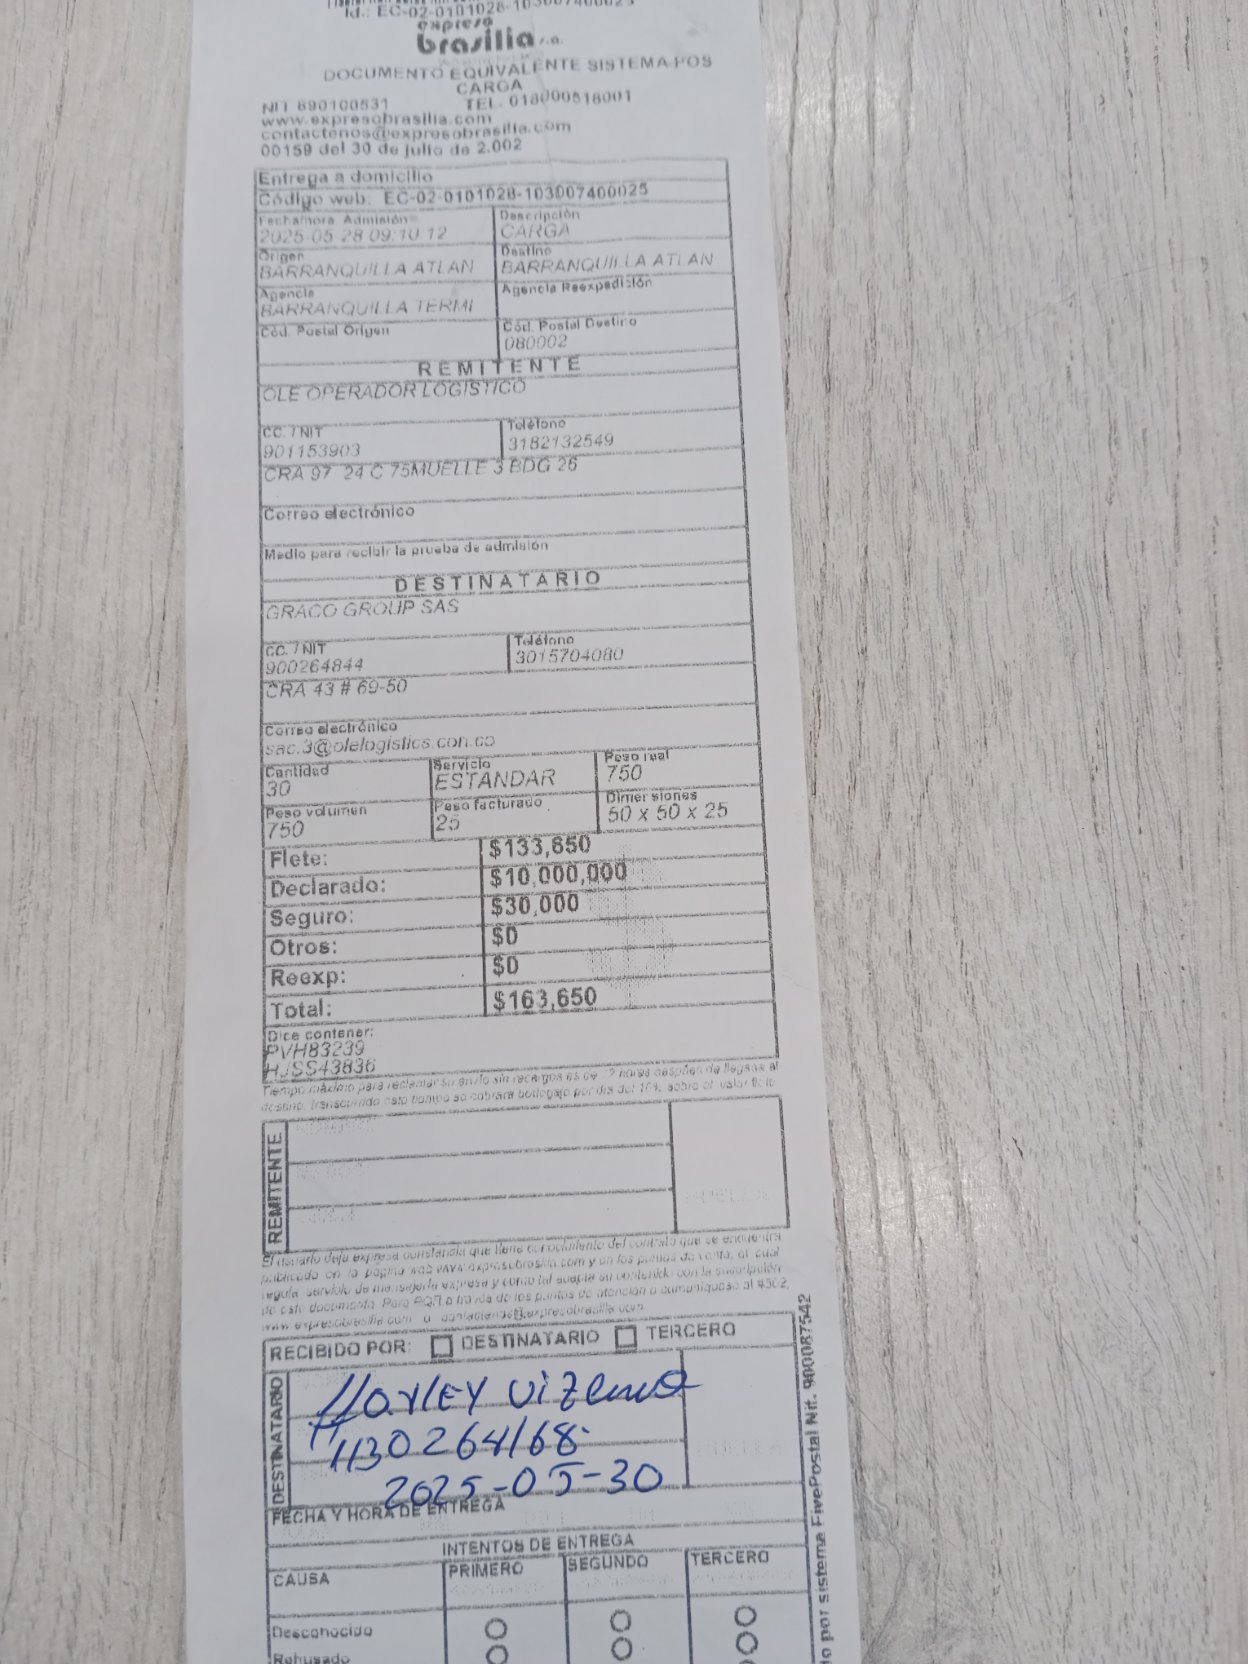 Id.: EC-02-0101028-103007400025
expreso
brasilia s.a.
DOCUMENTO EQUIVALENTE SISTEMA POS
CARGA
NIT 890100531 TEL. 018000518001
www.expresobrasilia.com
contactenos@expresobrasilia.com
00159 del 30 de julio de 2.002
Entrega a domicilio
Código web: EC-02-0101028-103007400025
Fecha/hora Admisión Descripción
2025-05-28 09:10:12 CARGA
Origen Destino
BARRANQUILLA ATLAN BARRANQUILLA ATLAN
Agencia Agencia Reexpedición
BARRANQUILLA TERMI
Cód. Postal Origen Cód. Postal Destino
080002
REMITENTE
OLE OPERADOR LOGISTICO
CC. / NIT Teléfono
901153903 3182132549
CRA 97 24 C 75MUELLE 3 BDG 26
Correo electrónico
Medio para recibir la prueba de admisión
DESTINATARIO
GRACO GROUP SAS
CC. / NIT Teléfono
900264844 3015704080
CRA 43 # 69-50
Correo electrónico
sac.3@olelogistics.con.co
Cantidad Servicio Peso real
30 ESTANDAR 750
Peso volumen Peso facturado Dimensiones
750 25 50 x 50 x 25
Flete: $133,650
Declarado: $10,000,000
Seguro: $30,000
Otros: $0
Reexp: $0
Total: $163,650
Dice contener:
PVH83239
HJSS43836
Tiempo máximo para reclamar su envío sin recargos es de 72 horas después de llegado al
destino, transcurrido este tiempo se cobrará bodegaje por día del 1%, sobre el valor flete
REMITENTE
El usuario deja expresa constancia que tiene conocimiento del contrato que se encuentra
publicado en la página web www.expresobrasilia.com y en los puntos de venta, el cual
regula servicio de mensajería expresa y como tal acepta su contenido con la suscripción
de este documento. Para PQR a través de los puntos de atención o comuníquese al 4302,
www.expresobrasilia.com o contactenos@expresobrasilia.com
RECIBIDO POR: DESTINATARIO TERCERO
DESTINATARIO
Harley Vizcaino
1130264168
2025-05-30
FECHA Y HORA DE ENTREGA
INTENTOS DE ENTREGA
CAUSA PRIMERO SEGUNDO TERCERO
Desconocido
Rehusado
por sistema FivePostal Nit. 900087542